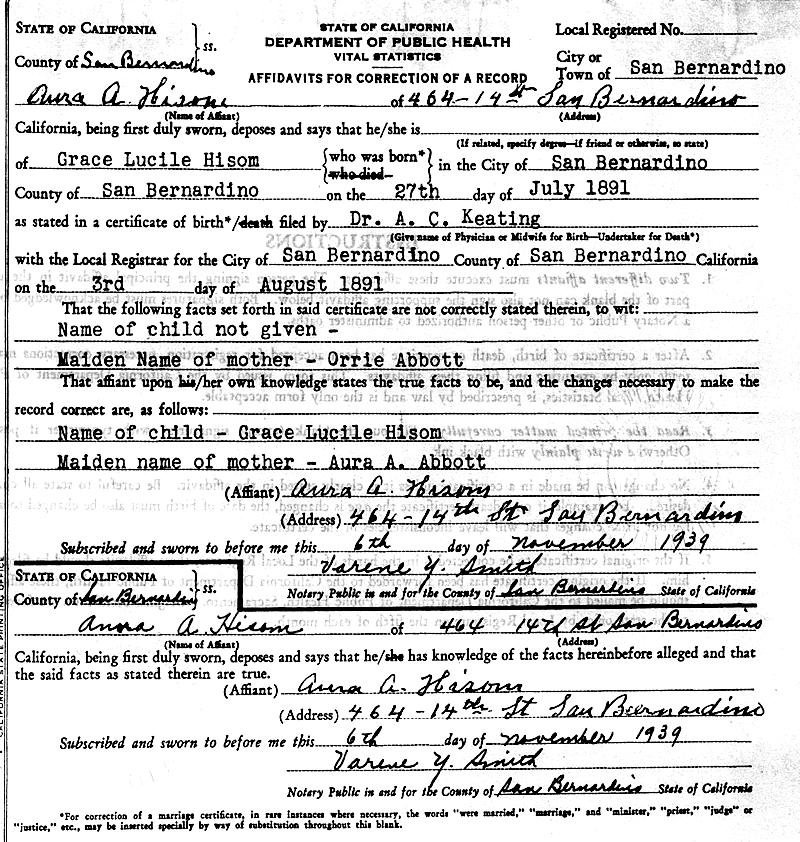 STATE OF CALIFORNIA
County of San Bernardino } ss.
STATE OF CALIFORNIA
DEPARTMENT OF PUBLIC HEALTH
VITAL STATISTICS
AFFIDAVITS FOR CORRECTION OF A RECORD
Local Registered No.
City or
Town of San Bernardino
Aura A Hisom of 464-14th St San Bernardino
(Name of Affiant) (Address)
California, being first duly sworn, deposes and says that he/she is
(If related, specify degree—if friend or otherwise, so state)
of Grace Lucile Hisom {who was born* who died} in the City of San Bernardino
County of San Bernardino on the 27th day of July 1891
as stated in a certificate of birth*/death filed by Dr. A. C. Keating
(Give name of Physician or Midwife for Birth—Undertaker for Death*)
with the Local Registrar for the City of San Bernardino County of San Bernardino California
on the 3rd day of August 1891
That the following facts set forth in said certificate are not correctly stated therein, to wit:
Name of child not given -
Maiden Name of mother - Orrie Abbott
That affiant upon his/her own knowledge states the true facts to be, and the changes necessary to make the
record correct are, as follows:
Name of child - Grace Lucile Hisom
Maiden name of mother - Aura A. Abbott
(Affiant) Aura A. Hisom
(Address) 464-14th St San Bernardino
Subscribed and sworn to before me this 6th day of November 1939
Varene Y. Smith
Notary Public in and for the County of San Bernardino State of California
STATE OF CALIFORNIA
County of San Bernardino } ss.
Anora A. Hisom of 464 14th St San Bernardino
(Name of Affiant) (Address)
California, being first duly sworn, deposes and says that he/she has knowledge of the facts hereinbefore alleged and that
the said facts as stated therein are true.
(Affiant) Aura A. Hisom
(Address) 464-14th St San Bernardino
Subscribed and sworn to before me this 6th day of November 1939
Varene Y. Smith
Notary Public in and for the County of San Bernardino State of California
*For correction of a marriage certificate, in rare instances where necessary, the words "were married," "marriage," and "minister," "priest," "judge" or
"justice," etc., may be inserted specially by way of substitution throughout this blank.
CALIFORNIA STATE PRINTING OFFICE